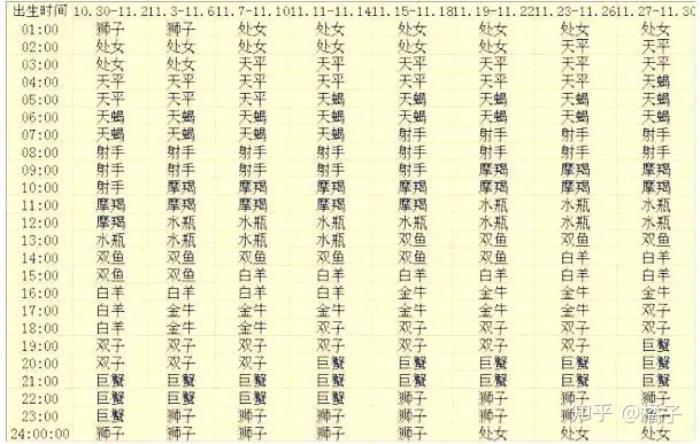 出生时间 10.30-11.2 11.3-11.6 11.7-11.10 11.11-11.14 11.15-11.18 11.19-11.22 11.23-11.26 11.27-11.30
01:00 狮子 狮子 处女 处女 处女 处女 处女 处女
02:00 处女 处女 处女 处女 处女 处女 天平 天平
03:00 处女 处女 天平 天平 天平 天平 天平 天平
04:00 天平 天平 天平 天平 天平 天平 天平 天蝎
05:00 天平 天平 天平 天蝎 天蝎 天蝎 天蝎 天蝎
06:00 天蝎 天蝎 天蝎 天蝎 天蝎 天蝎 天蝎 天蝎
07:00 天蝎 天蝎 天蝎 天蝎 射手 射手 射手 射手
08:00 射手 射手 射手 射手 射手 射手 射手 射手
09:00 射手 射手 射手 射手 射手 摩羯 摩羯 摩羯
10:00 射手 摩羯 摩羯 摩羯 摩羯 摩羯 摩羯 摩羯
11:00 摩羯 摩羯 摩羯 摩羯 摩羯 水瓶 水瓶 水瓶
12:00 摩羯 水瓶 水瓶 水瓶 水瓶 水瓶 水瓶 水瓶
13:00 水瓶 水瓶 水瓶 水瓶 双鱼 双鱼 双鱼 双鱼
14:00 双鱼 双鱼 双鱼 双鱼 双鱼 双鱼 白羊 白羊
15:00 双鱼 双鱼 白羊 白羊 白羊 白羊 白羊 白羊
16:00 白羊 白羊 白羊 白羊 金牛 金牛 金牛 金牛
17:00 白羊 金牛 金牛 金牛 金牛 金牛 金牛 双子
18:00 白羊 金牛 金牛 双子 双子 双子 双子 双子
19:00 双子 双子 双子 双子 双子 双子 双子 巨蟹
20:00 双子 双子 双子 巨蟹 巨蟹 巨蟹 巨蟹 巨蟹
21:00 巨蟹 巨蟹 巨蟹 巨蟹 巨蟹 巨蟹 巨蟹 巨蟹
22:00 巨蟹 巨蟹 巨蟹 巨蟹 狮子 狮子 狮子 狮子
23:00 巨蟹 狮子 狮子 狮子 狮子 狮子 狮子
24:00:00 狮子 狮子 狮子 狮子 狮子 处女 处女 处女
知乎 @橘子